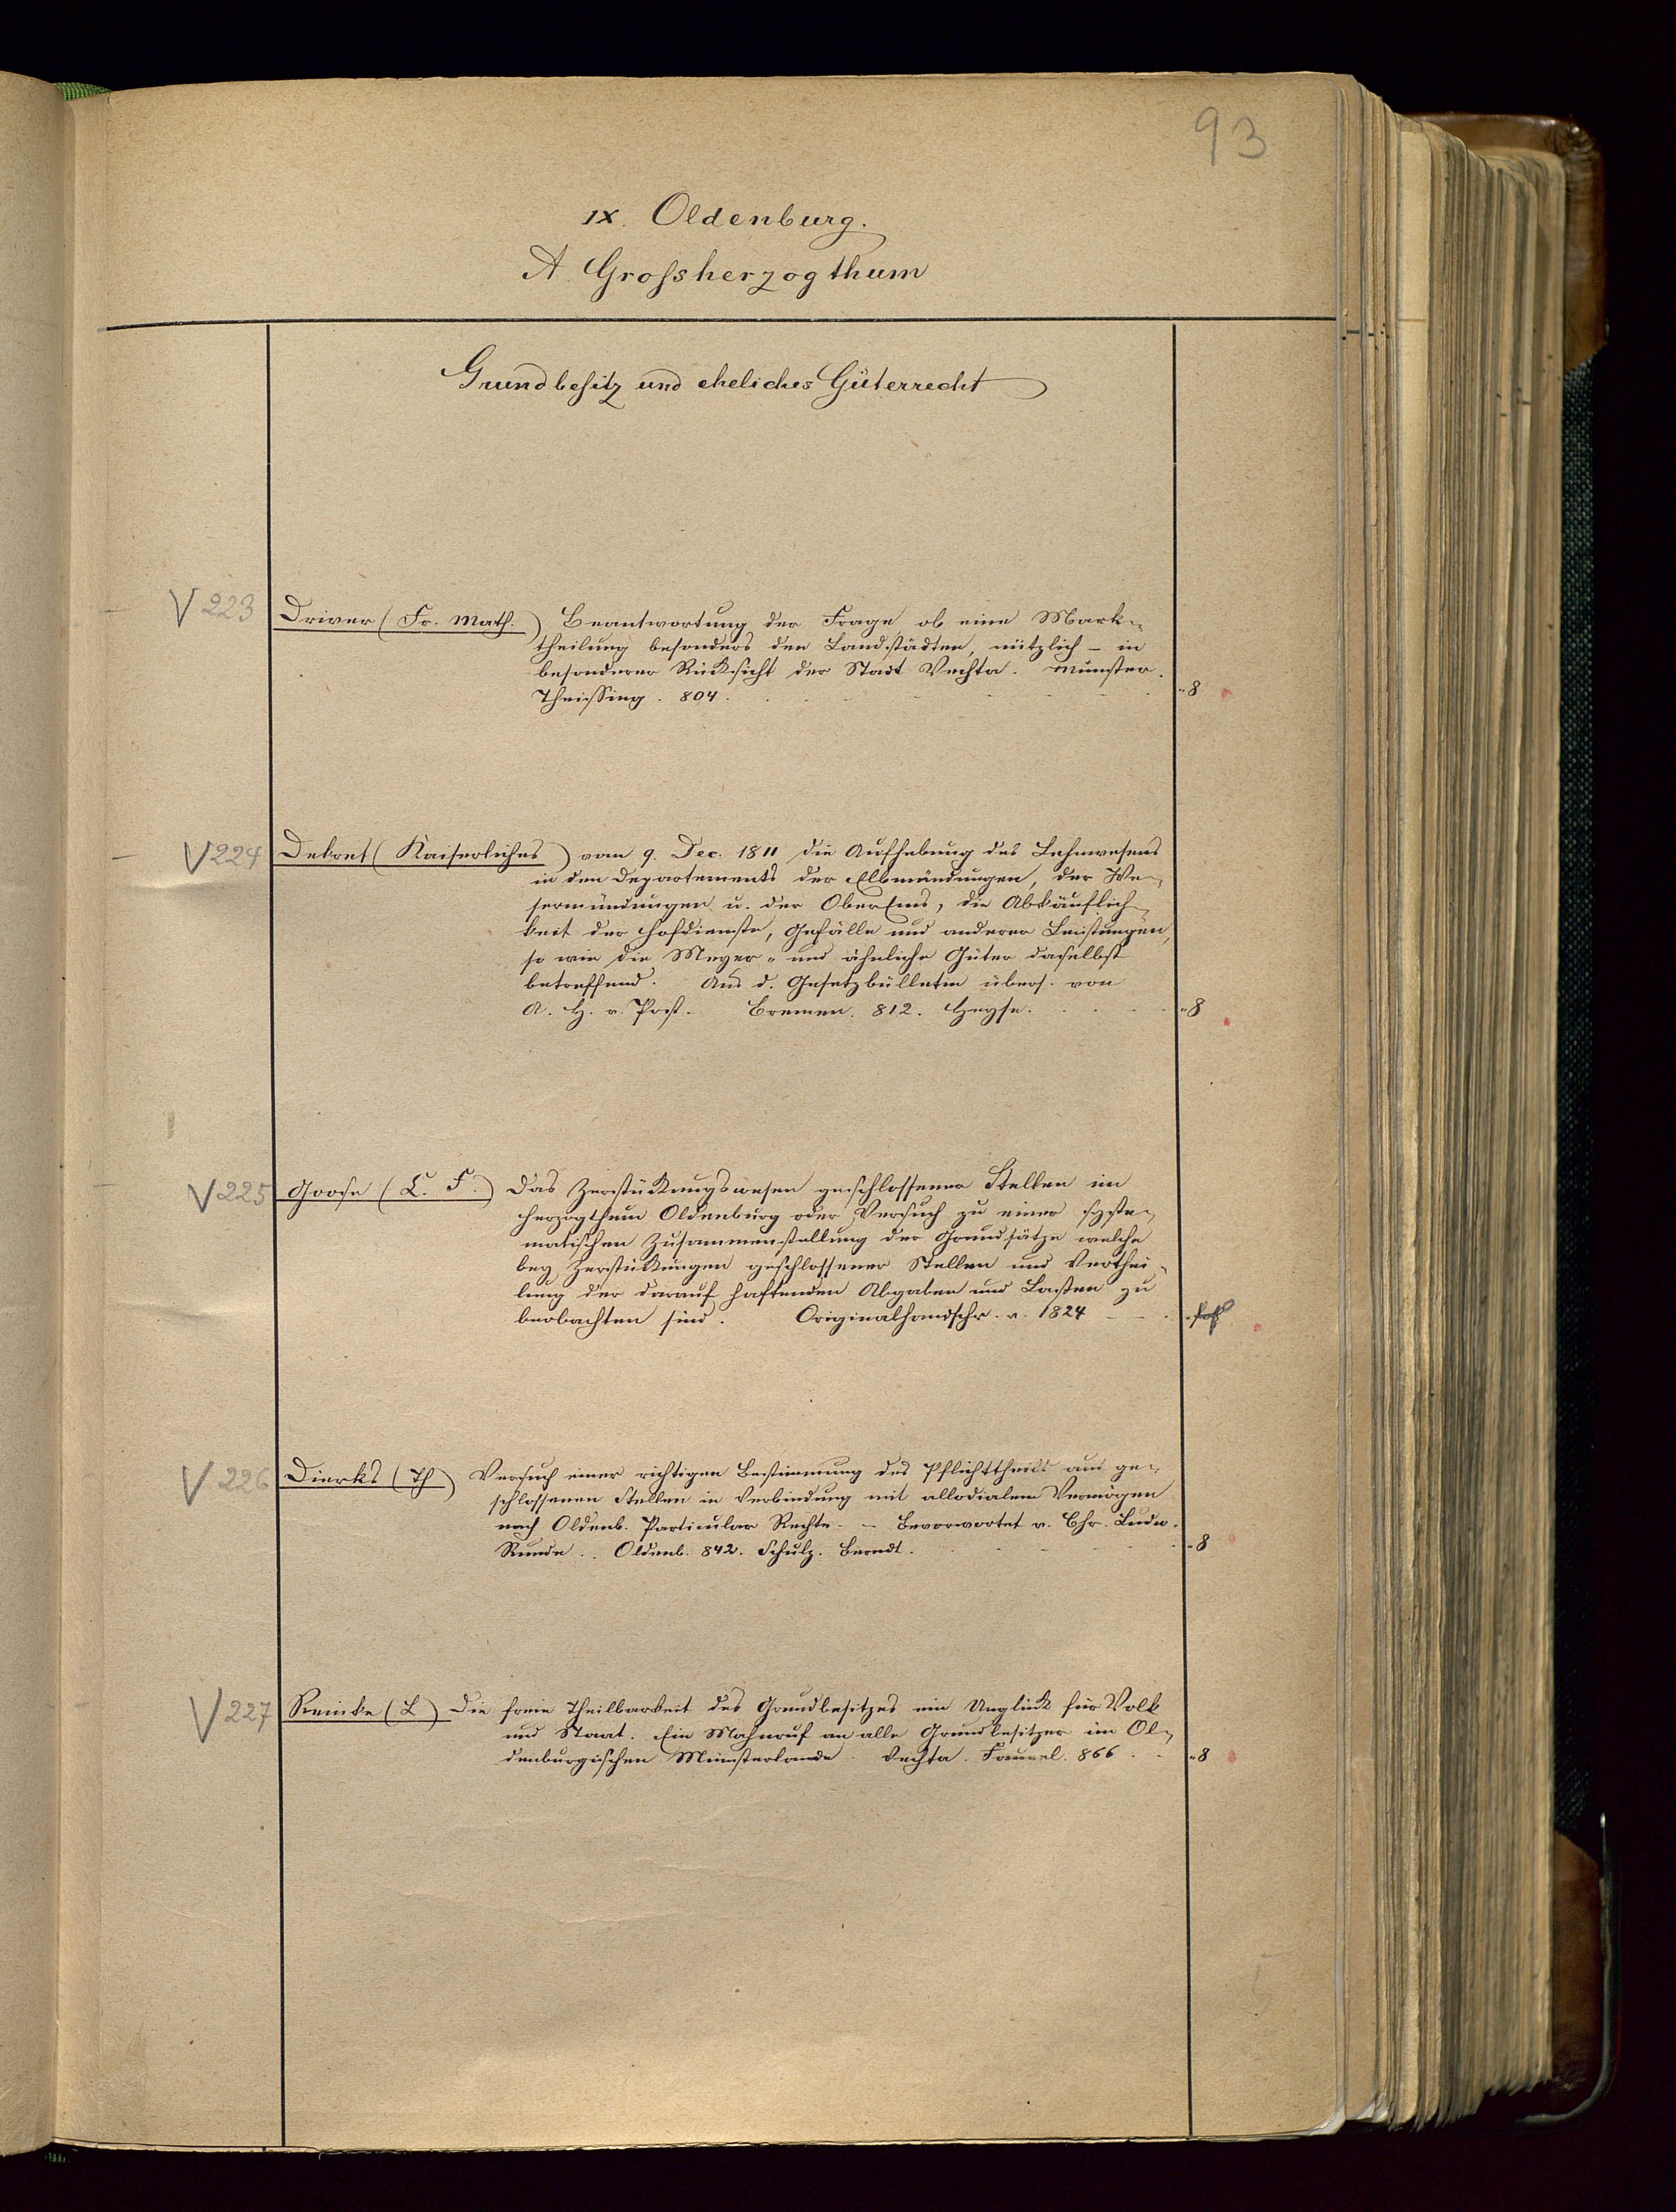 93
IX. Oldenburg.
A. Grossherzogthum
Grundbesitz und eheliches Güterrecht
V 223 Driver (Fr. Math.) Beantwortung der Frage ob eine Mark-
theilung besonders den Landstädten, nützlich - in
besonderer Rücksicht der Stadt Vechta. Münster.
Theissing. 804. "8
V 224 Dekret (Kaiserliches) vom 9. Dec. 1811 die Aufhebung des Lehnwesens
in den Departements der Elbmündungen, der We-
sermündungen u. der OberEms, die Abkäuflich-
keit der Hofdienste, Gefälle und anderer Leistungen,
so wie die Meyer- und ähnliche Güter daselbst
betreffend. Aus d. Gesetzbülletin übers. von
A. H. v. Post. Bremen. 812. Heyse. "8
V 225 Goose (L. F.) Das Zerstückungswesen geschlossener Stellen im
Herzogthum Oldenburg oder Versuch zu einer syste-
matischen Zusammenstellung der Grundsätze welche
bey Zerstückungen geschlossener Stellen und Verthei-
lung der darauf haftenden Abgaben und Lasten zu
beobachten sind. Originalhandschr. v. 1824
V 226 Dierks (Th) Versuch einer richtigen Bestimmung des Pflichttheils aus ge-
schlossenen Stellen in Verbindung mit allodialem Vermögen
nach Oldenb. Particular Rechte. - Bevorwortet v. Chr. Ludw.
Runde. Oldenb. 842. Schulz. Berndt. "8
V 227 Reinke (L) Die freie Theilbarkeit des Grundbesitzes ein Unglück für Volk
und Staat. Ein Mahnruf an alle Grundbesitzer im Ol-
denburgischen Münsterlande. Vechta. Fauvel. 866. "8